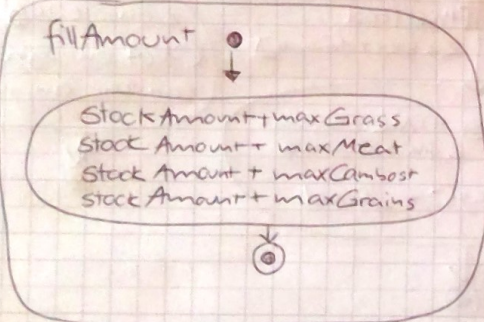 fillAmount
StockAmount+maxGrass
Stock Amount+ maxMeat
Stock Amount + maxCambost
stock Amount + maxGrains